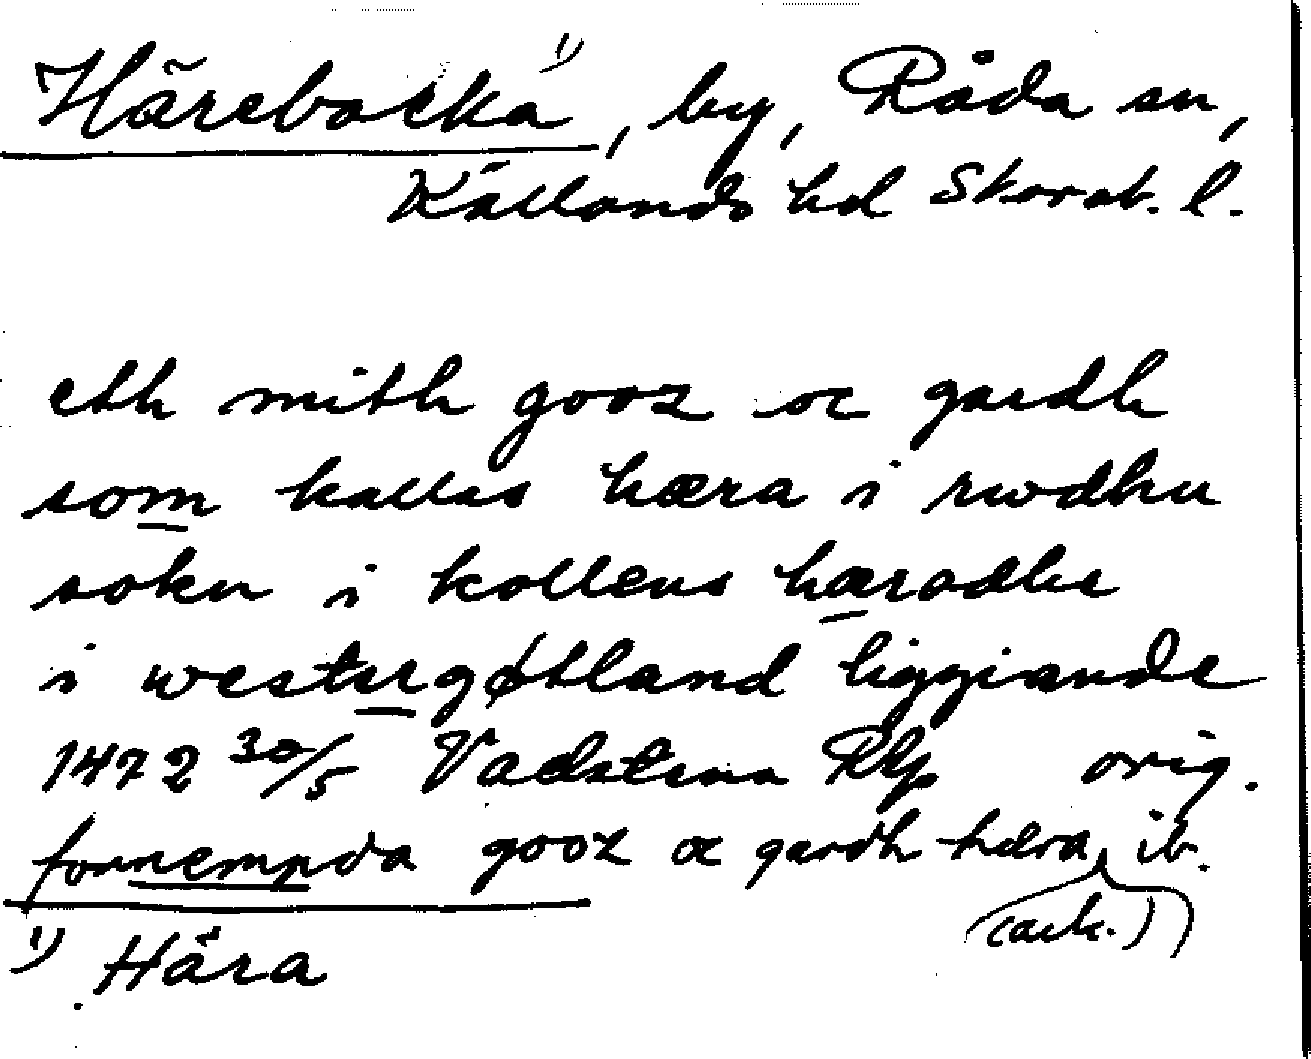 Härebacka ¹⁾, by, Råda sn,
Kållands hd Skarab. l.
eth mith gooz oc gardh
som kallas hæra i rwdhu
sokn i kollens hæradhe
i westergøtland liggiande
1472 30/5 Vadstena Rkp orig.
fornempda gooz oc gardh hæra ib.
(ack.)
¹⁾ Hära